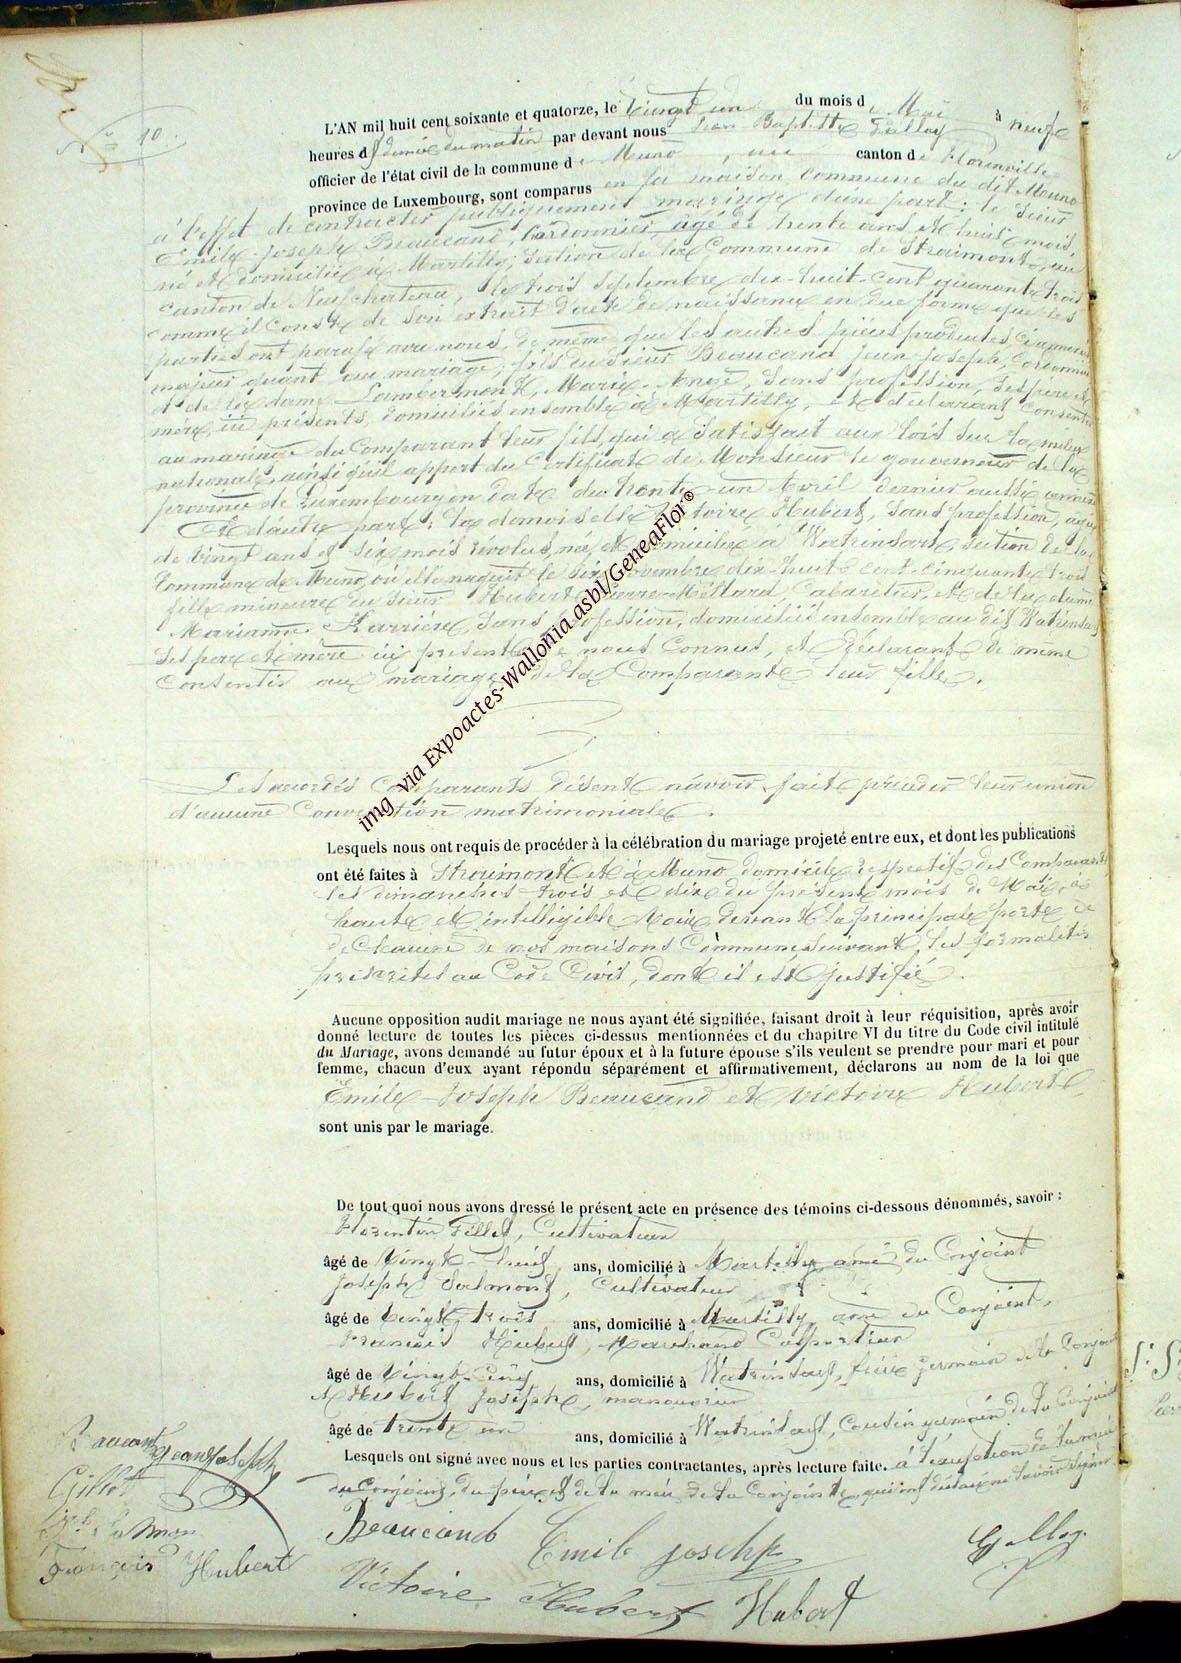 N° 10.
L'AN mil huit cent soixante et quatorze, le Vingt un du mois de Mai à neuf
heures & demie du matin par devant nous Jean Baptiste Galloy
officier de l'état civil de la commune de Muno, canton de Florenville
province de Luxembourg, sont comparus en la maison commune du dit Muno
à l'effet de contracter publiquement mariage d'une part: le Sieur
Emile-Joseph Beaucand, Cordonnier, âgé de trente ans et huit mois,
né et domicilié à Martilly, section de la Commune de Straimont, au
canton de Neufchateau, le trois Septembre dix-huit-cent quarante trois
comme il conste de son extrait d'acte de naissance en due forme que les
parties ont parafé avec nous, de même que les autres pièces produites
majeur quant au mariage; fils du Sieur Beaucand Jean-Joseph, Cordonnier
et de la dame Lambermont, Marie-Ange, Sans profession, Ses père et
mère, ici présents, domiciliés ensemble à Martilly, et déclarant consentir
au mariage du Comparant leur fils, qui a satisfait aux lois sur la milice
nationale, ainsi qu'il appert du Certificat de Monsieur le gouverneur de la
province de Luxembourg en date du trente-un Avril dernier aussi
Et d'autre part: la demoiselle Victoire Hubert, Sans profession, âgée
de vingt ans et six mois révolus, née et domiciliée à Watrinsart, section de la
Commune de Muno, où elle naquit le six Novembre dix-huit-cent-cinquante trois
fille mineure du Sieur Hubert Pierre- Cabaretier, et de la dame
Marianne Sans profession, domiciliés ensemble au dit Watrinsart
Ses père et mère ici présents de nous Connus, et Déclarant de même
Consentir au mariage de la Comparante leur fille.
Les accordés Comparants disent n'avoir fait précéder leur union
d'aucune Convention matrimoniale.
img via Expoactes-Wallonia asbl/GeneaFlor©
Lesquels nous ont requis de procéder à la célébration du mariage projeté entre eux, et dont les publications
ont été faites à Straimont et à Muno domicile respectif des Comparants
les dimanches trois et dix du présent mois de Mai, à
haute et intelligible Voix devant la principale porte de
de Chacune de nos maisons Communes, Suivant les formalités
prescrites au Code Civil, dont il est justifié.
Aucune opposition audit mariage ne nous ayant été signifiée, faisant droit à leur réquisition, après avoir
donné lecture de toutes les pièces ci-dessus mentionnées et du chapitre VI du titre du Code civil intitulé
du Mariage, avons demandé au futur époux et à la future épouse s'ils veulent se prendre pour mari et pour
femme, chacun d'eux ayant répondu séparément et affirmativement, déclarons au nom de la loi que
Emile-Joseph Beaucand et Victoire Hubert
sont unis par le mariage.
De tout quoi nous avons dressé le présent acte en présence des témoins ci-dessous dénommés, savoir :
Florentin Gillet, Cultivateur
âgé de Vingt-huit ans, domicilié à Martilly, ami du Conjoint
Joseph Salmon, Cultivateur
âgé de Vingt trois ans, domicilié à Martilly, ami du Conjoint,
François Hubert, Marchand Colporteur
âgé de Vingt-Cinq ans, domicilié à Watrinsart, frère germain de la Conjointe
et Hubert Joseph, manouvrier
âgé de trente un ans, domicilié à Watrinsart, Cousin germain de la Conjointe
Lesquels ont signé avec nous et les parties contractantes, après lecture faite. à l'exception de la mère
du Conjoint, du père et de la mère de la Conjointe, qui ont déclaré ne Savoir Signer
Beaucant Jean Joseph
Gillet
François Hubert
Beaucand Emile Joseph Galloy
Victoire Hubert Hubert